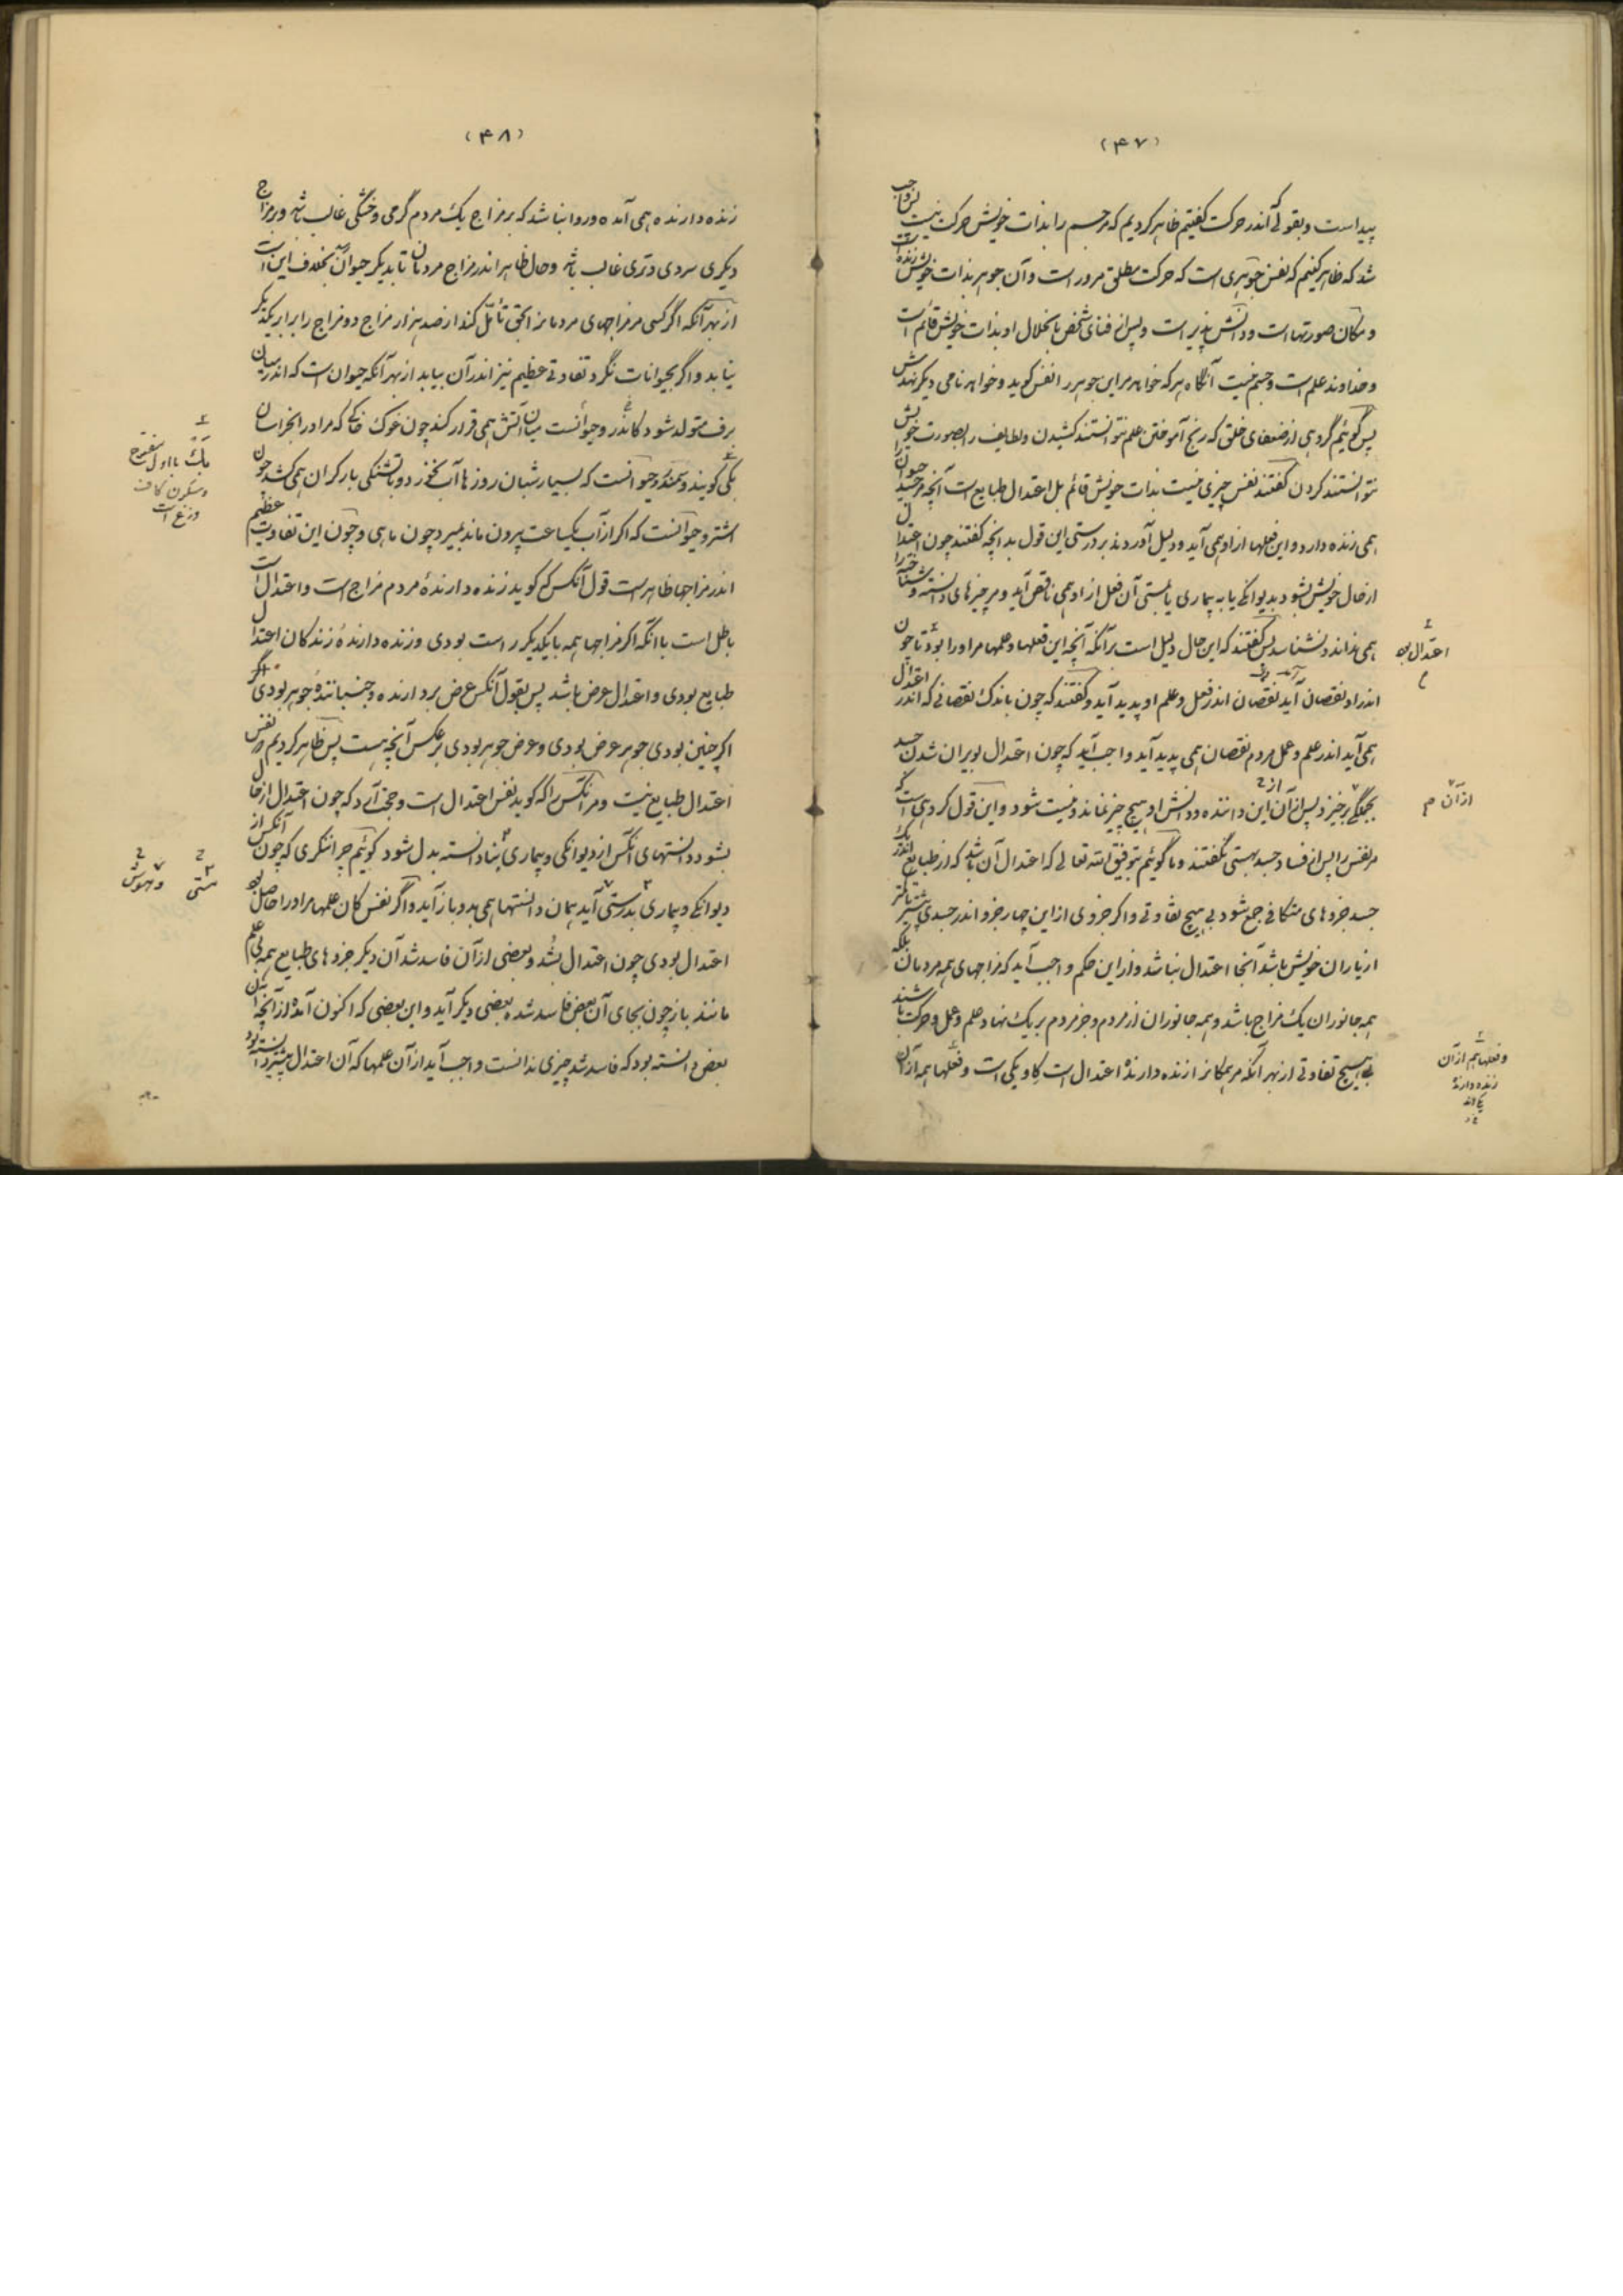 (۴۷)
پیداست و بقولی که اندر حرکت گفتیم ظاهر کردیم که مر جسم را بذات خویش حرکت نیست پس واجب
شد که ظاهر کنیم که نفس جوهری است که حرکت مطلق مر او راست و آن جوهر بذات خویش زنده است
و مکان صورتهاست و دانش پذیر است و پس از فنای شخص بانحلال او بذات خویش قائم است
و خداوند علم است و جسم نیست آنگاه هر که خواهد مر این جوهر را نفس گوید و خواهد نامی دیگر نهدش
پس گوئیم گروهی از ضعفای خلق که رنج آموختن علم نتوانستند کشیدن و لطایف را بصورت خویش
نتوانستند کردن گفتند نفس چیزی نیست بذات خویش قائم بل اعتدال طبایع است آنچه مر جسد حیوان را
همی زنده دارد و این فعلها از او همی آید و دلیل آوردند بر درستی این قول بدانچه گفتند چون اعتدال
از حال خویش بشود بدیوانگی یا به بیماری یا بمستی آن فعل از او همی ناقص آید و مر چیزهای دانسته و شناخته را
همی نداند و نشناسد پس گفتند که این حال دلیل است بر آنکه آنچه این فعلها و علمها مر او را بود تا چون
اندر او نقصان آید نقصان اندر فعل و علم او پدید آید و گفتند که چون باندک نقصانی که اندر اعتدال
همی آید اندر علم و عمل مردم نقصان همی پدید آید واجب آید که چون اعتدال بویران شدن جسد
بجملگی برخیزد پس از آن از این داننده و دانش او هیچ چیز نماند و نیست شود و این قول گروهی است که
مر نفس را پس از فساد جسد هستی نگفتند و ما گوئیم بتوفیق الله تعالی که اعتدال آن باشد که از طبایع اندر یک
جسد جزوهای متکافی جمع شود بی هیچ تفاوتی و اگر جزوی از این چهار جزو اندر جسدی بیشتر یا کمتر
از یاران خویش باشد آنجا اعتدال نباشد و از این حکم واجب آید که مزاجهای همه مردمان بلکه
همه جانوران یک مزاج باشد و همه جانوران از مردم و جز مردم بر یک نهاد و علم و عمل و حرکت باشند
بی هیچ تفاوتی از بهر آنکه مر همگانرا زنده دارندهٔ اعتدال است که او یکی است و فعلها همه از آن
اعتدال بود
از آن م
و فعلها هم از آن
زنده دارنده
یکی اند
(۴۸)
زنده دارنده همی آمده و روا نباشد که بر مزاج یک مردم گرمی و خشکی غالب باشد و بر مزاج
دیگری سردی و تری غالب باشد و حال ظاهر اندر مزاج مردمان تا بدیگر حیوان بخلاف این است
از بهر آنکه اگر کسی مر مزاجهای مردمانرا بحق تأمّل کند از صد هزار مزاج دو مزاج را برابر یکدیگر
نیابد و اگر بحیوانات نگرد تفاوتی عظیم نیز اندر آن بیابد از بهر آنکه حیوان است که اندر میان
برف متولد شود کاندر و حیوانست میان آتش همی قرار کند چون غوک خاکی که مر او را بخراسان
بکی گویند و سمندر و حیوانست که بسیار شبان روزها آب نخورد و با تشنگی بار گران همی کشد چون
اشتر و حیوانست که اگر از آب یکساعت بیرون ماند بمیرد چون ماهی و چون این تفاوت عظیم
اندر مزاجها ظاهر است قول آنکس که گوید زنده دارندهٔ مردم مزاج است و اعتدال است
باطل است با آنکه اگر مزاجها همه با یکدیگر راست بودی و زنده دارندهٔ زندگان اعتدال
طبایع بودی و اعتدال عرض باشد پس بقول آنکس عرض بردارنده و جنبانندهٔ جوهر بودی و اگر
اگر چنین بودی جوهر عرض بودی و عرض جوهر بودی بر عکس آنچه هست پس ظاهر کردیم که نفس
اعتدال طبایع نیست و مر آنکس را که گوید نفس اعتدال است و حجت آرد که چون اعتدال از حال
بشود دانستهای آنکس از دیوانگی و بیماری بنادانسته بدل شود گوئیم چرا ننگری که چون آنکس از
دیوانگی و بیماری بدرستی آید همان دانستها همی بدو باز آید و اگر نفس کان علمها مر او را حاصل بود
اعتدال بودی چون اعتدال بشد و بعضی از آن فاسد شد آن دیگر جزوهای طبایع همه بی علم
مانند باز چون بجای آن بعض فاسد شده بعضی دیگر آید و این بعضی که اکنون آمد از آنچه آن
بعض دانسته بود که فاسد شد چیزی ندانست واجب آید از آن علمها که آن اعتدال پیشین دانسته بود
بک با اول مفتوح
و سکون کاف
وزغ است
مستی
و بهوش